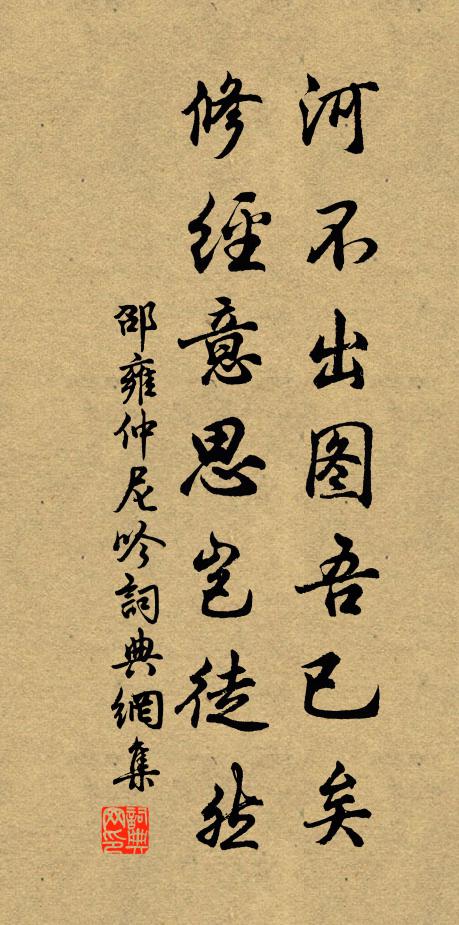 河不出图吾已矣
修經意思岂徒然
邵雍仲尼吟詞典網集
詞典網印